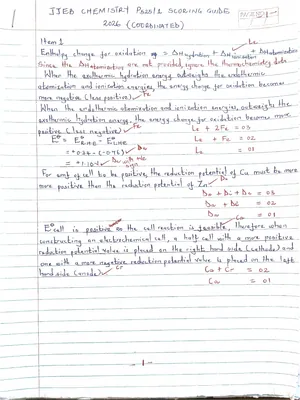 1
IJEB CHEMISTRY P525/2 SCORING GUIDE
2026 (COORDINATED)
Item 1
Enthalpy change for oxidation = ΔHhydration + ΔHionisation + ΔHatomization
Le
Since the ΔHatomization are not provided, ignore the thermochemistry data
When the exothermic hydration energy outweighs the endothermic
atomization and ionisation energies, the energy change for oxidation becomes
more negative (less positive). Fe
When the endothermic atomization and ionisation energies, outweighs the
exothermic hydration energy, the energy change for oxidation becomes more
positive (less negative). Fe
Le + 2Fe = 03
Le + Fe = 02
Le = 01
E° = E°RHE - E°LHE
= +0.34 - (-0.76) Du
= +1.10V Du with +ve sign
For emf of cell to be positive, the reduction potential of Cu must be more
more positive than the reduction potential of Zn Di
Du + Di + Du = 03
Du + Di = 02
Du = 01
E° cell is positive so the cell reaction is feasible, Therefore when
constructing an electrochemical cell, a half cell with a more positive
reduction potential value is placed on the right hand side (cathode) and
one with a more negative reduction potential value is placed on the left
hand side (anode). Cr
Ca + Cr = 02
Ca = 01
-1-